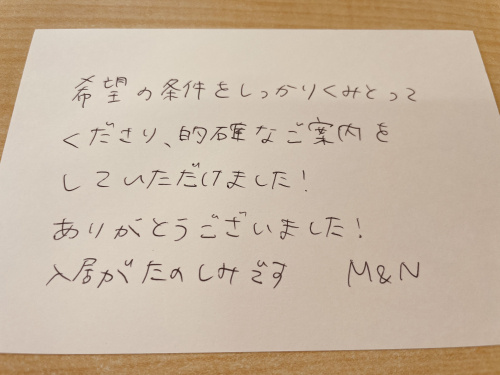 希望の条件をしっかりくみとって
くださり、的確なご案内を
していただけました!
ありがとうございました!
入居がたのしみです M&N